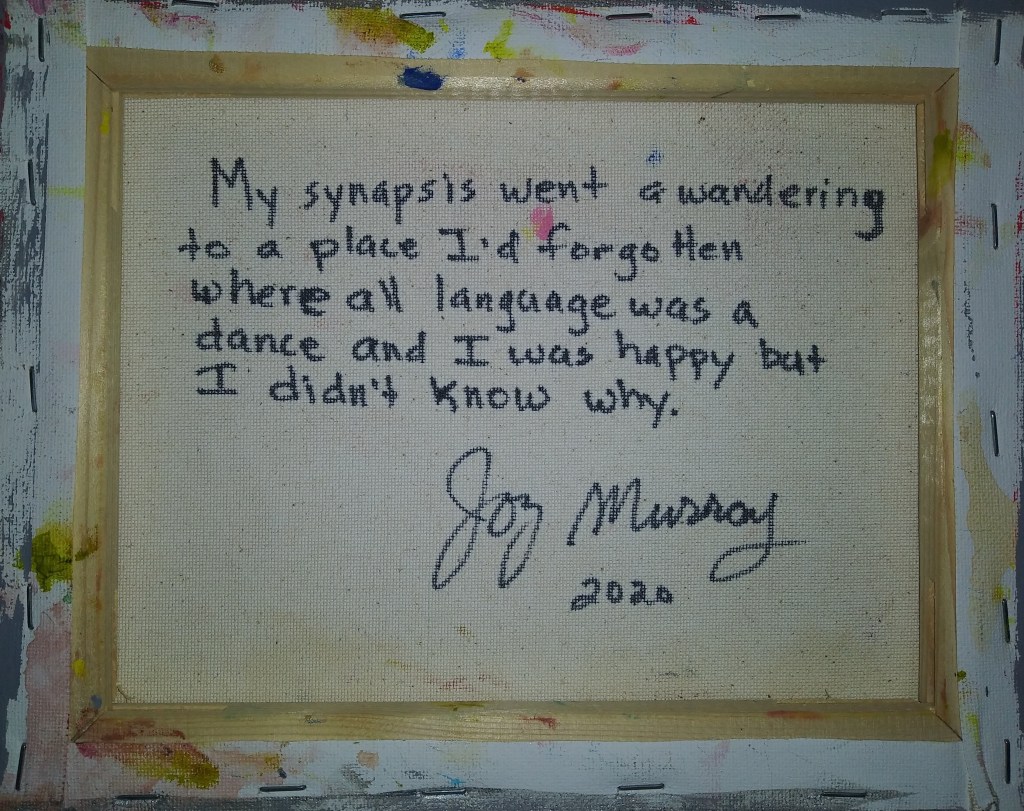 My synapsis went a wandering
to a place I'd forgotten
where all language was a
dance and I was happy but
I didn't know why.
Joy Murray
2020